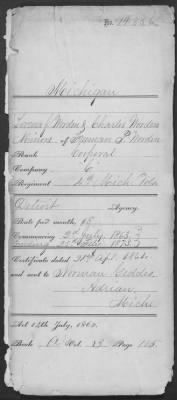 No. 19.886
Michigan
Lorena J. Worden & Charles Worden
Minors of Freeman P. Worden
Rank Corporal
Company C
Regiment 4th Mich Vols
Detroit Agency
Rate per month $8
Commencing 2d July 1863
Ending 25th Feb. 1875
Certificate dated 21st Apl. 1864
and sent to Norman Geddes
Adrian,
Mich.
Act 14th July, 1862.
Book A Vol. 13 Page 115.